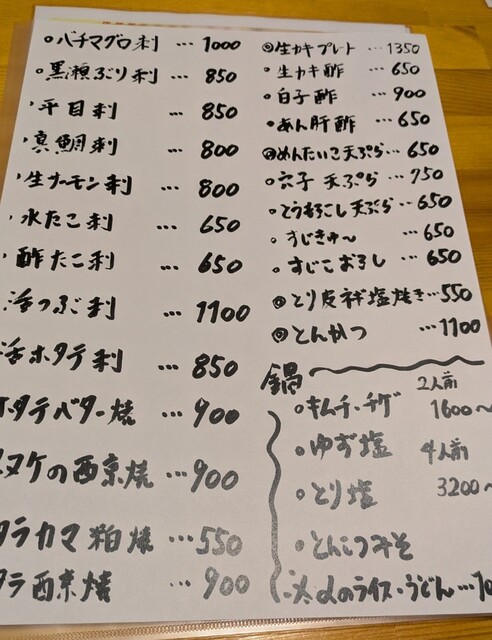 バチマグロ刺 … 1000
黒瀬ぶり刺 … 850
平目刺 … 850
真鯛刺 … 800
生サーモン刺 … 800
水たこ刺 … 650
酢たこ刺 … 650
活つぶ刺 … 1100
活ホタテ刺 … 850
ホタテバター焼 … 900
ヌケの西京焼 … 900
タラカマ粕焼 … 550
タラ西京焼 … 900
◎生カキプレート … 1350
生カキ酢 … 650
白子酢 … 900
あん肝酢 … 650
◎めんたいこ天ぷら … 650
穴子天ぷら … 750
とうもろこし天ぷら … 650
すじきゅ〜 … 650
すじこおろし … 650
◎とり皮 塩焼き … 550
◎とんかつ … 1100
鍋
キムチ・チゲ
ゆず塩
とり塩
とんこつみそ
2人前
1600〜
4人前
3200〜
〆のライス・うどん …